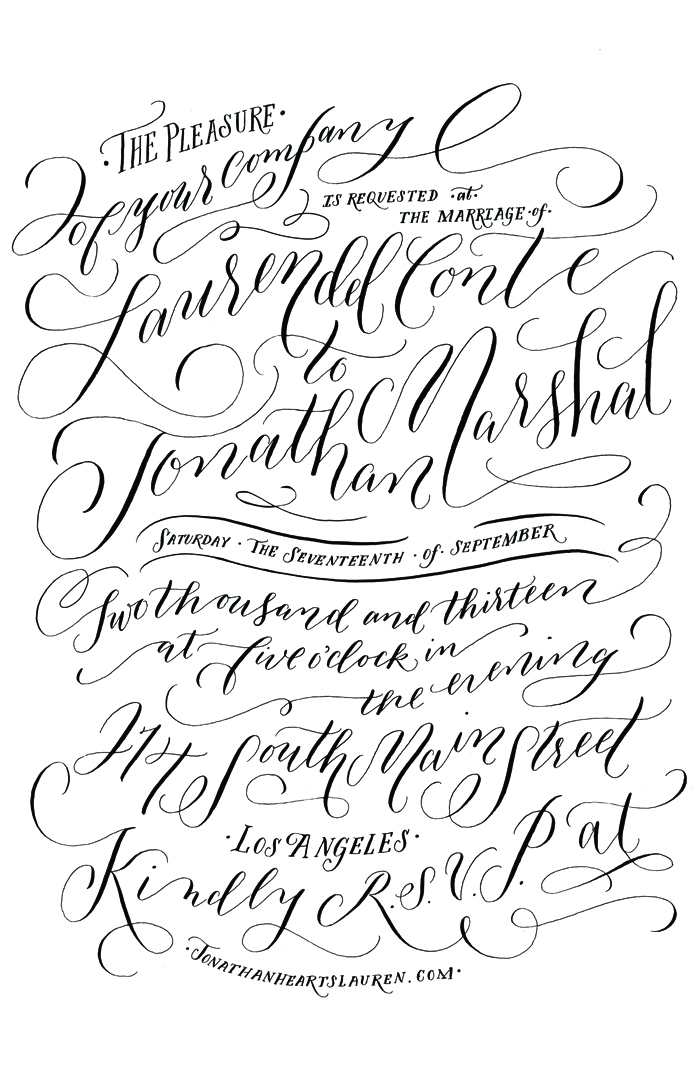 The Pleasure
of your company
is requested at
the marriage of
Lauren del Conte
to
Jonathan Marshal
Saturday · the Seventeenth · of · September
two thousand and thirteen
at five o'clock in
the evening
214 South Main Street
· Los Angeles ·
Kindly R.S.V.P. at
· Jonathanheartslauren.com ·